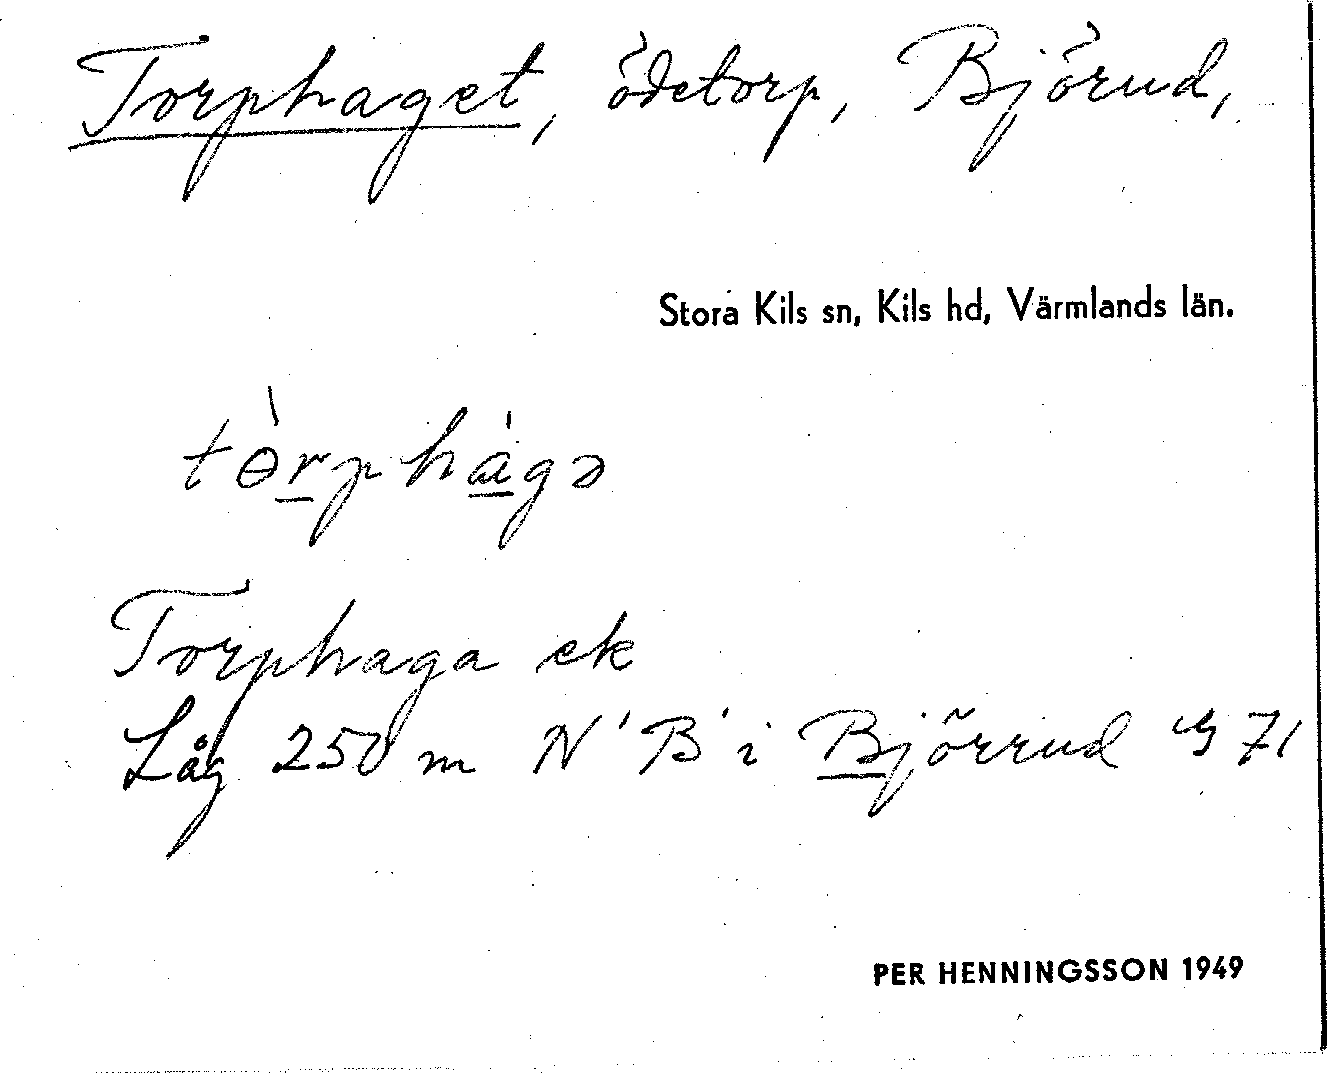 Torphaget, ödetorp, Björud,
Stora Kils sn, Kils hd, Värmlands län.
tɵ̀rphágə
Torphaga ek
Låg 250 m N 'B' i Björrud 71
PER HENNINGSSON 1949